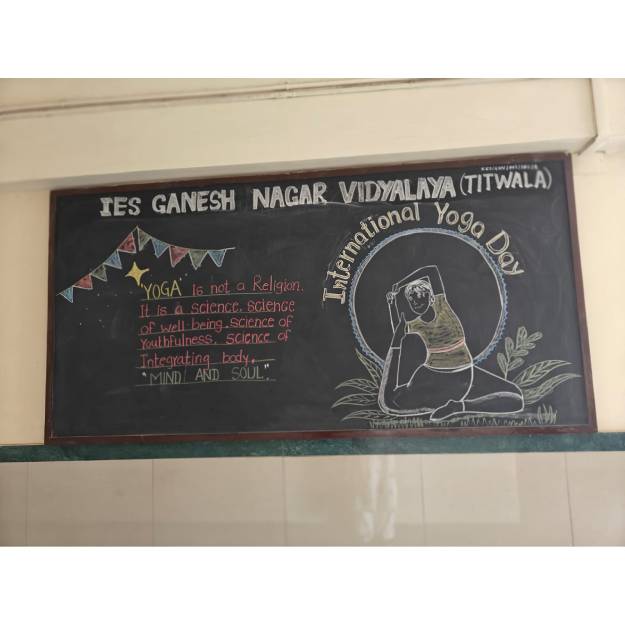 IES GANESH NAGAR VIDYALAYA (TITWALA)
International Yoga Day
"YOGA is not a Religion.
It is a science, science
of well being, science of
Youthfulness, science of
Integrating body,
"MIND AND SOUL".